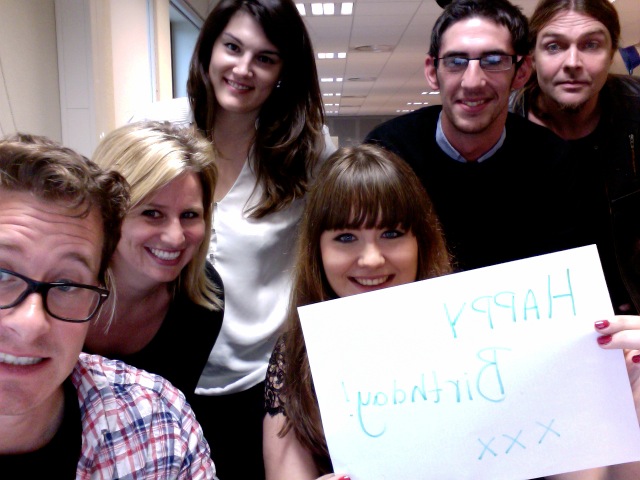 HAPPY
Birthday!
xxx